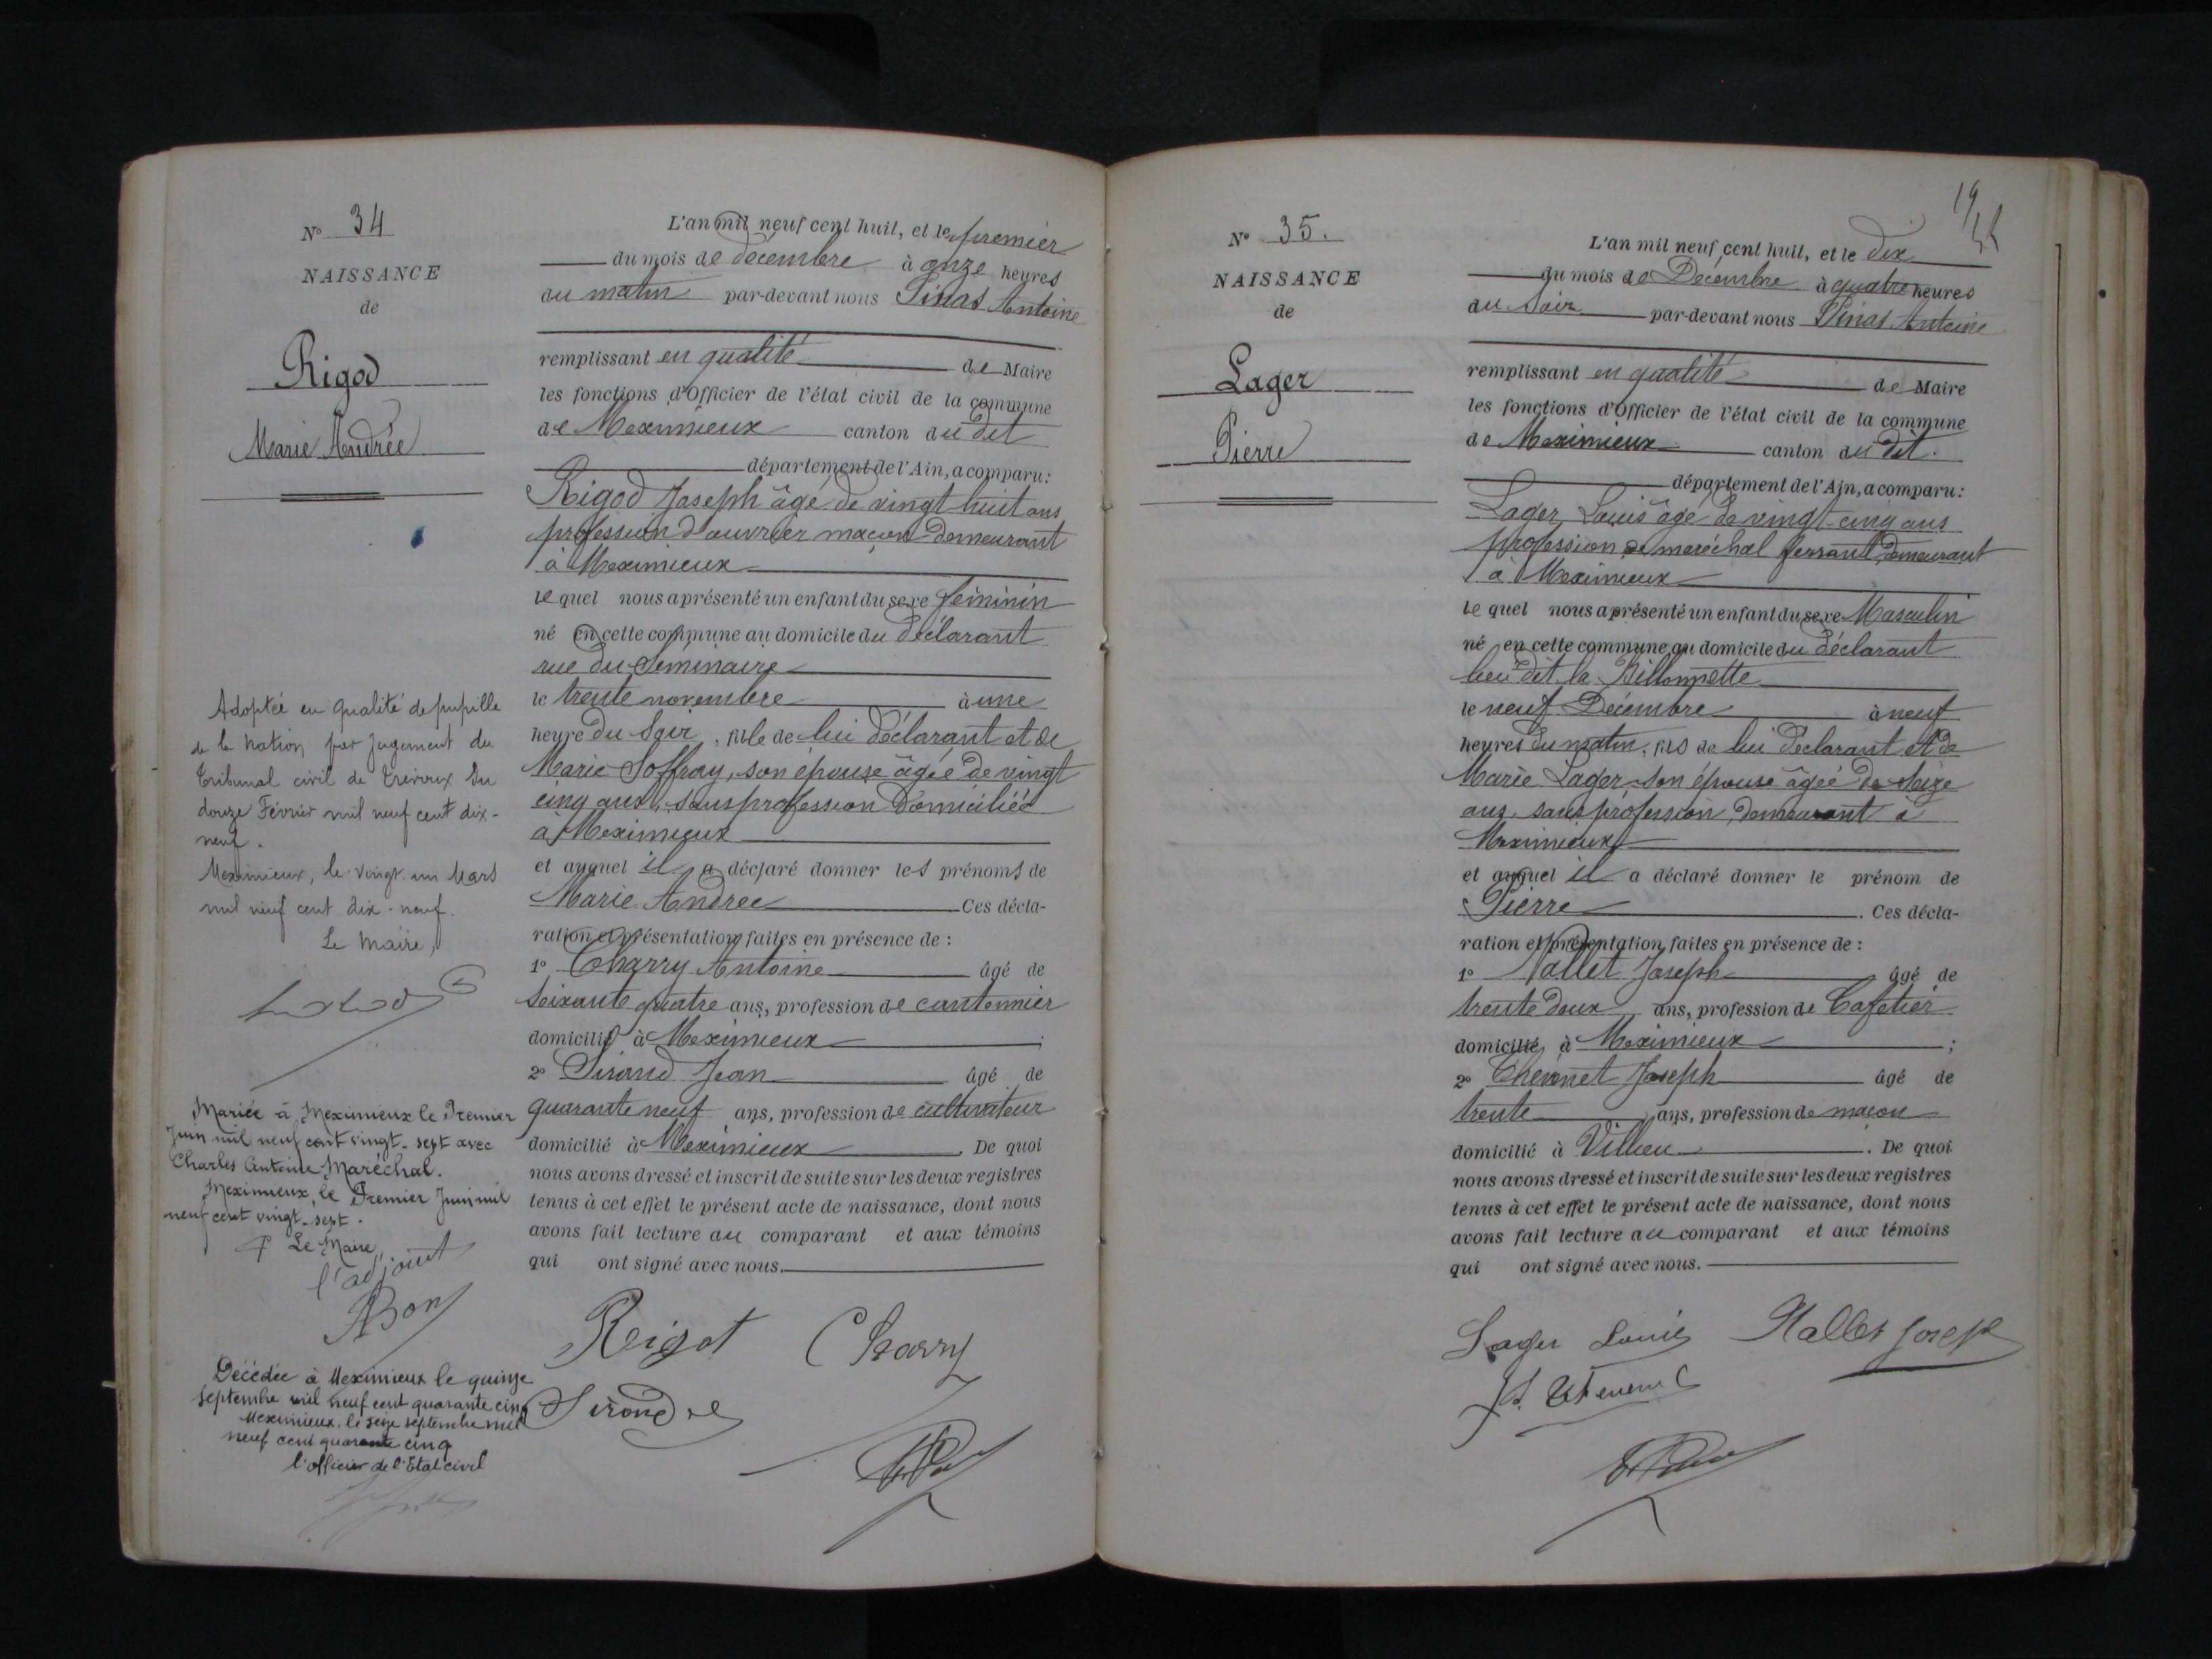 N° 34
NAISSANCE
de
Rigod
Marie Andrée
Adoptée en qualité de pupille
de la Nation par jugement du
tribunal civil de Trévoux du
douze Février mil neuf cent dix-
neuf.
Meximieux, le vingt un Mars
mil neuf cent dix-neuf.
Le Maire,
Mariée à Meximieux le Premier
Juin mil neuf cent vingt-sept avec
Charles Antoine Maréchal.
Meximieux, le Premier Juin mil
neuf cent vingt-sept.
Le Maire,
l'adjoint
Bon
Décédée à Meximieux le quinze
septembre mil neuf cent quarante cinq
Meximieux, le seize septembre mil
neuf cent quarante cinq
l'officier de l'Etat civil
L'an mil neuf cent huit, et le premier
du mois de décembre à onze heures
du matin par-devant nous Pinas Antoine
remplissant en qualité de Maire
les fonctions d'Officier de l'état civil de la commune
de Meximieux canton du dit
département de l'Ain, a comparu:
Rigod Joseph âgé de vingt huit ans
profession d'ouvrier maçon demeurant
à Meximieux
lequel nous a présenté un enfant du sexe féminin
né en cette commune au domicile du déclarant
rue du Séminaire
le trente novembre à une
heure du soir, fille de lui déclarant et de
Marie Joffray, son épouse âgée de vingt
cinq ans, sans profession domiciliée
à Meximieux
et auquel il a déclaré donner les prénoms de
Marie Andrée Ces décla-
ration et présentation faites en présence de :
1° Charry Antoine âgé de
soixante quatre ans, profession de cantonnier
domicilié à Meximieux ;
2° Sirand Jean âgé de
quarante neuf ans, profession de cultivateur
domicilié à Meximieux. De quoi
nous avons dressé et inscrit de suite sur les deux registres
tenus à cet effet le présent acte de naissance, dont nous
avons fait lecture au comparant et aux témoins
qui ont signé avec nous.
Reigot Charry
Sirand
19
N° 35.
NAISSANCE
de
Lager
Pierre
L'an mil neuf cent huit, et le dix
du mois de Décembre à quatre heures
du soir par-devant nous Pinas Antoine
remplissant en qualité de Maire
les fonctions d'Officier de l'état civil de la commune
de Meximieux canton du dit.
département de l'Ain, a comparu:
Lager Louis âgé de vingt-cinq ans
profession de maréchal ferrant, demeurant
à Meximieux
lequel nous a présenté un enfant du sexe Masculin
né en cette commune au domicile du déclarant
lieu dit la Billonnette
le neuf Décembre à neuf
heures du matin, fils de lui déclarant et de
Marie Lager son épouse âgée de seize
ans, sans profession, demeurant à
Meximieux
et auquel il a déclaré donner le prénom de
Pierre. Ces décla-
ration et présentation faites en présence de :
1° Nallet Joseph âgé de
trente deux ans, profession de Cafetier
domicilié à Meximieux ;
2° Thévenet Joseph âgé de
trente ans, profession de maçon
domicilié à Villieu. De quoi
nous avons dressé et inscrit de suite sur les deux registres
tenus à cet effet le présent acte de naissance, dont nous
avons fait lecture au comparant et aux témoins
qui ont signé avec nous.
Lager Louis Nallet Joseph